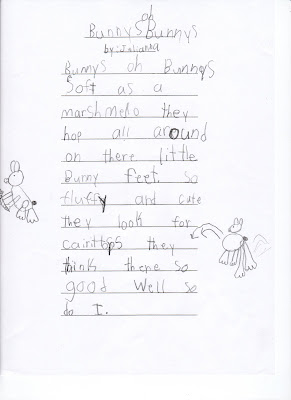 oh
Bunnys Bunnys
by: Julianna
Bunnys oh Bunnys
Soft as a
marshmello they
hop all around
on there little
Bunny feet. so
fluffy and cute
they look for
cairttops they
think there so
good Well so
do I.